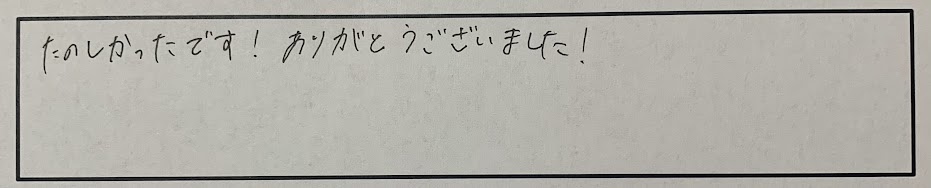 たのしかったです! ありがとうございました!